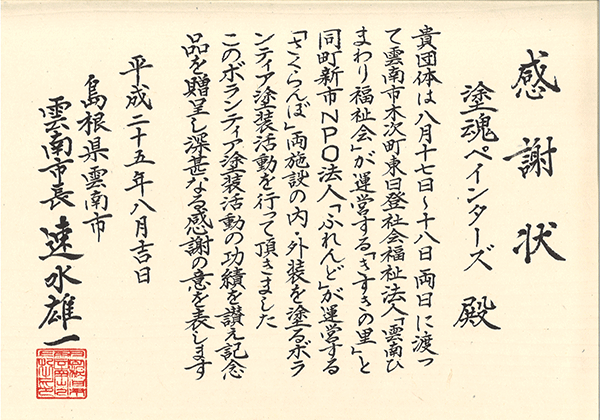 感謝状
塗魂ペインターズ 殿
貴団体は八月十七日~十八日 両日に渡っ
て雲南市木次町東日登社会福祉法人「雲南ひ
まわり福祉会」が運営する「きすきの里」と
同町新市NPO法人「ふれんど」が運営する
「さくらんぼ」両施設の内・外装を塗るボラ
ンティア塗装活動を行って頂きました
このボランティア塗装活動の功績を讃え記念
品を贈呈し深甚なる感謝の意を表します
平成二十五年八月吉日
島根県雲南市
雲南市長 速水雄一